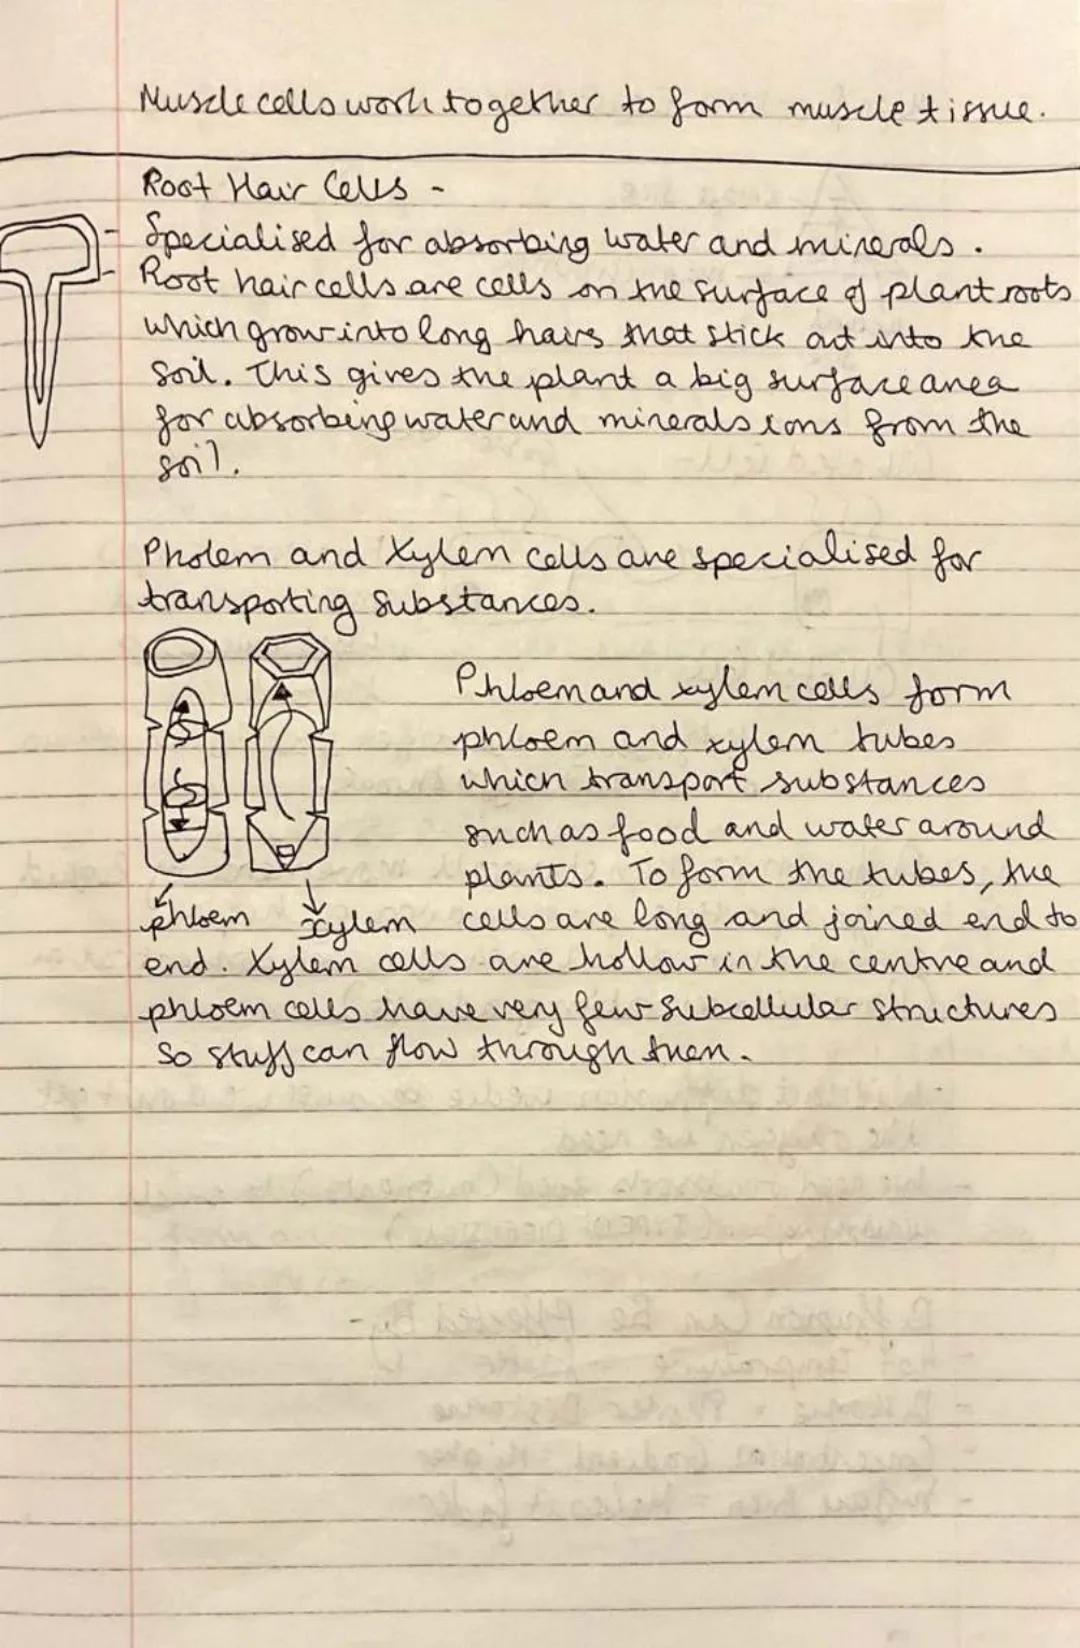 Muscle cells work together to form muscle tissue.
Root Hair Cells -
- Specialised for absorbing water and minerals.
- Root hair cells are cells on the surface of plant roots
which grow into long hairs that stick out into the
soil. This gives the plant a big surface area
for absorbing water and minerals ions from the
soil.
Pholem and Xylem cells are specialised for
transporting substances.
Phloem and xylem cells form
phloem and xylem tubes
which transport substances
such as food and water around
plants. To form the tubes, the
phloem xylem cells are long and joined end to
end. Xylem cells are hollow in the centre and
phloem cells have very few subcellular structures
so stuff can flow through them.